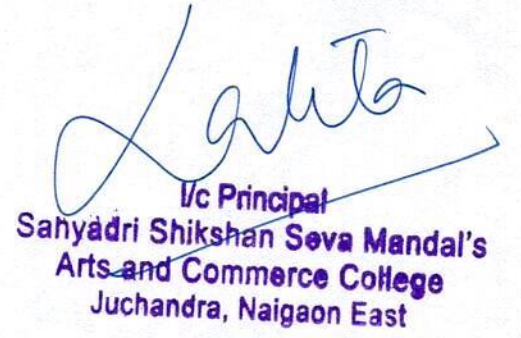 Lalita
I/c Principal
Sahyadri Shikshan Seva Mandal's
Arts and Commerce College
Juchandra, Naigaon East